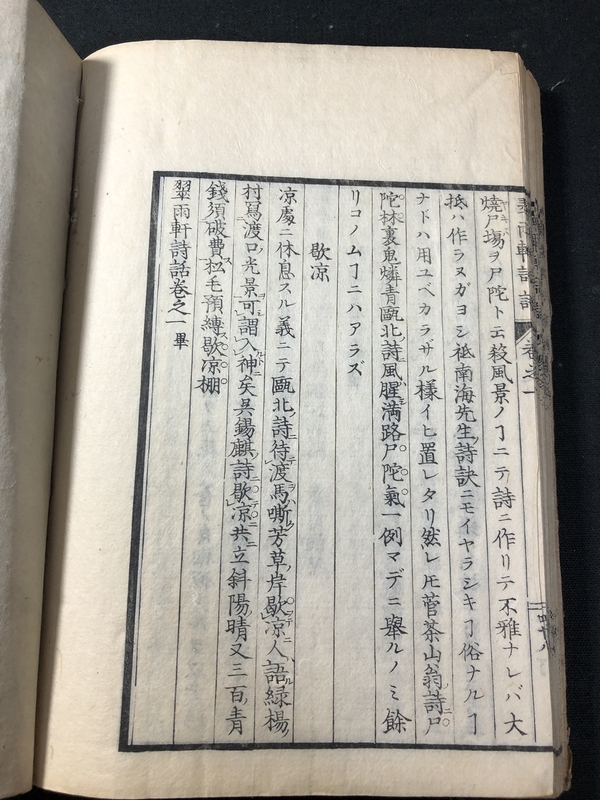 翠雨軒詩話 卷之一
燒尸場ヲ尸陀ト云殺風景ノヿニテ詩ニ作リテ不雅ナレバ大
抵ハ作ラヌガヨシ祗南海先生ノ詩訣ニモイヤラシキヿ俗ナルヿ
ナドハ用ユベカラザル樣イヒ置レタリ然レ𪜈菅茶山翁ノ詩ニ尸
陀林裏鬼燐青甌北ノ詩風腥満路尸陀氣一例マデニ舉ルノミ餘
リコノムヿニハアラズ
歇凉
凉處ニ休息スル義ニテ甌北ノ詩ニ待渡馬嘶芳草岸歇凉人語緑楊ノ
村寫渡口ノ光景可謂入神矣吳錫麒ノ詩ニ歇凉共立斜陽晴又三百ノ青
錢須破費松毛預縛歇凉棚
翠雨軒詩話卷之一 畢
四十八